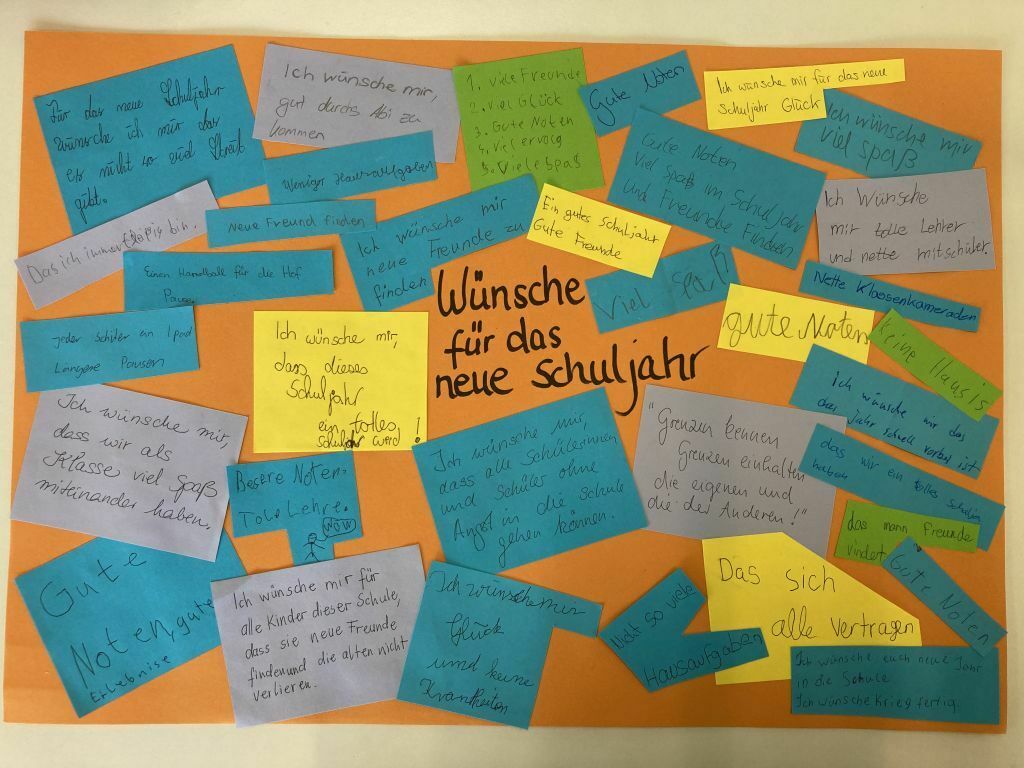 Wünsche
für das
neue Schuljahr
Für das neue Schuljahr
wünsche ich mir das
es nicht so viel Streit
gibt.
Ich wünsche mir,
gut durchs Abi zu
kommen
1. viele Freunde
2. Viel Glück
3. Gute Noten
4. Viel ervolg
5. Viele Spaß
Gute Noten
Ich wünsche mir für das neue
Schuljahr Glück
Ich wünsche mir
viel spaß
Weniger Hausaufgaben
Gute Noten
Viel Spaß im Schuljahr
Und Freunde Finden
Ich Wünsche
mir tolle Lehrer
und nette mitschüler.
Das ich immer bin.
Neue Freund finden
Ich wünsche mir
neue Freunde zu
finden
Ein gutes schuljahr
Gute Freunde
Einen Handball für die Hof
Pause
Viel Spaß
Nette Klassenkameraden
jeder schüler ein Ipad
Längere Pausen
Ich wünsche mir,
dass dieses
Schuljahr
ein tolles
schuljahr wird !
gute Noten
keine Hausis
Ich wünsche mir das
das Jahr schnell vorbei ist
Ich wünsche mir,
dass wir als
Klasse viel Spaß
miteinander haben.
Besere Noten.
Tole Lehre.
WOW
Ich wünsche mir,
dass alle Schülerinnen
und Schüler ohne
Angst in die Schule
gehen können.
"Grenzen kennen
Grenzen einhalten
die eigenen und
die der Anderen!"
das wir ein tolles
haben
das mann Freunde
vindert
Gute
Noten, gute
Erlebnise
Ich wünsche mir für
alle Kinder dieser Schule,
dass sie neue Freunde
finden und die alten nicht
verlieren.
Ich wünsche mir
Glück
und keine
Krankheiten
Nicht so viele
Hausaufgaben
Das sich
alle vertragen
Gute Noten
Ich wünsche euch neue Jahr
in die Schule
Ich wünsche Krieg fertig.